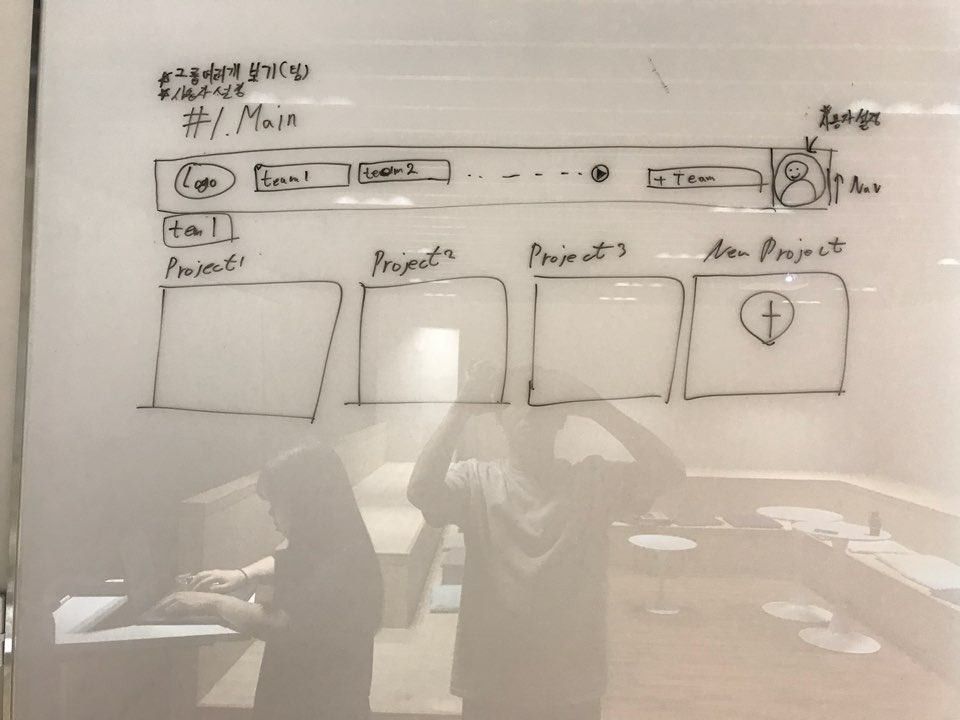 * 그룹여러개 보기(팀)
* 사용자 설정
#1. Main
사용자 설정
Logo team1 team2 + Team
Nav
tem 1
Project1 Project2 Project3 New Project